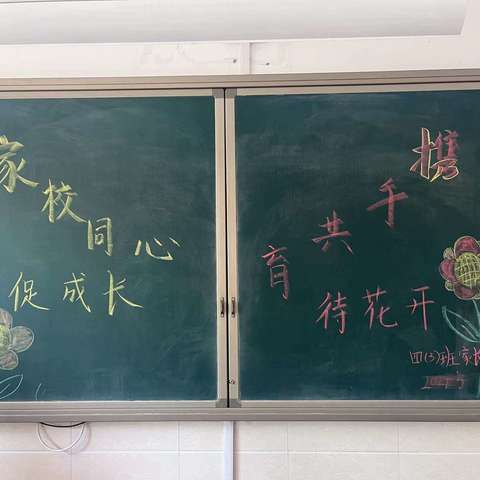 家校同心
促成长
携手共育
待花开
四(3)班家